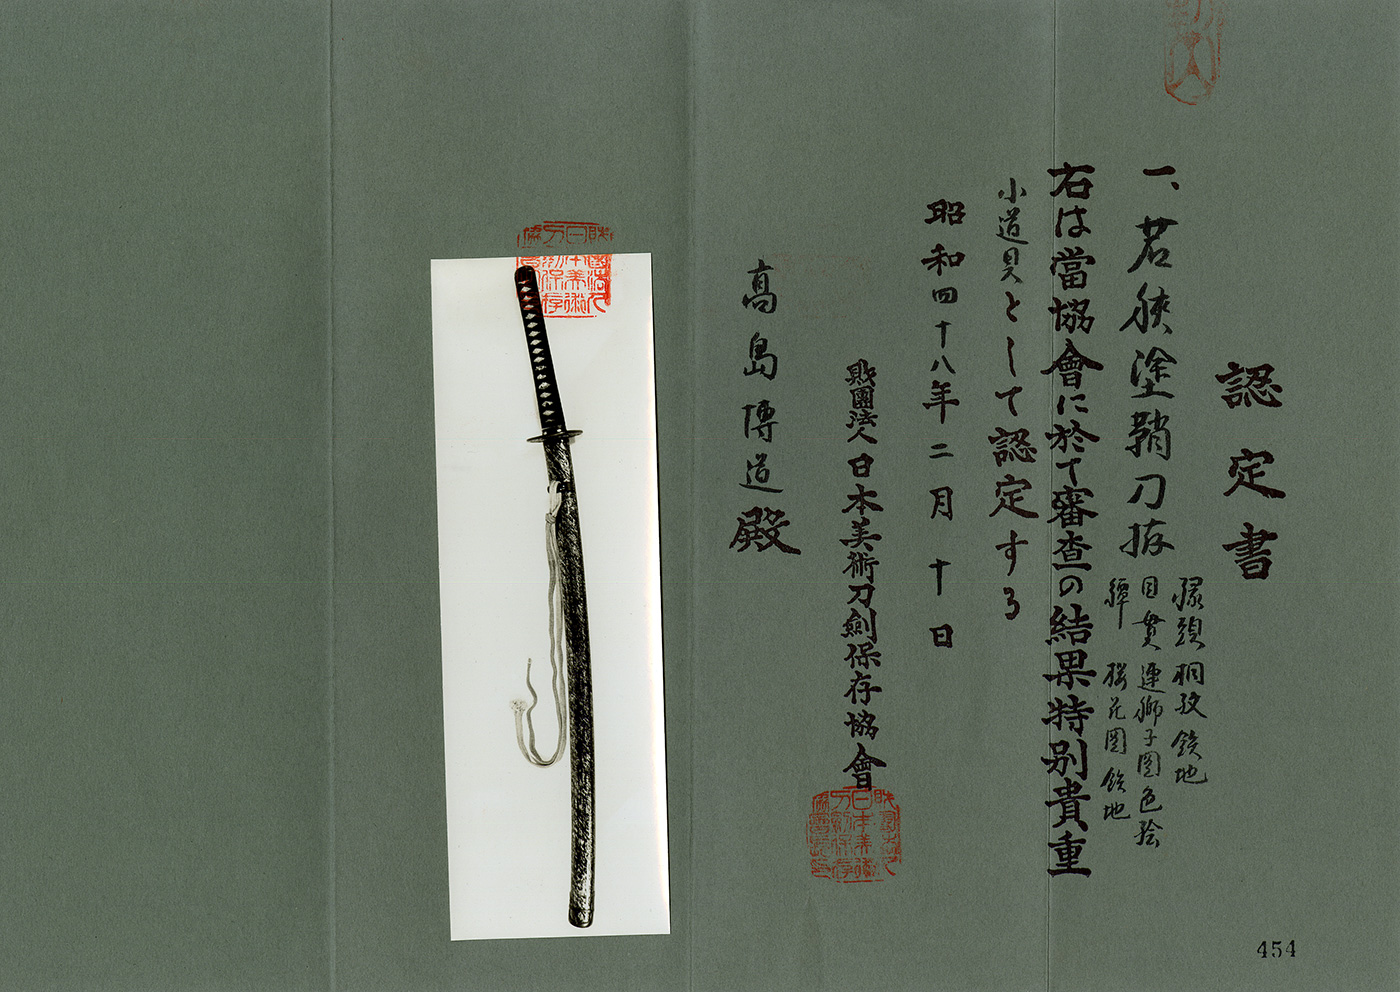 認定書
一、若狭塗鞘刀拵
縁頭 桐紋鉄地
目貫 連獅子図色絵
鐔 桜花図鉄地
右は當協會に於て審査の結果特別貴重
小道具として認定する
昭和四十八年二月十日
財團法人日本美術刀劍保存協會
高島博道殿
454